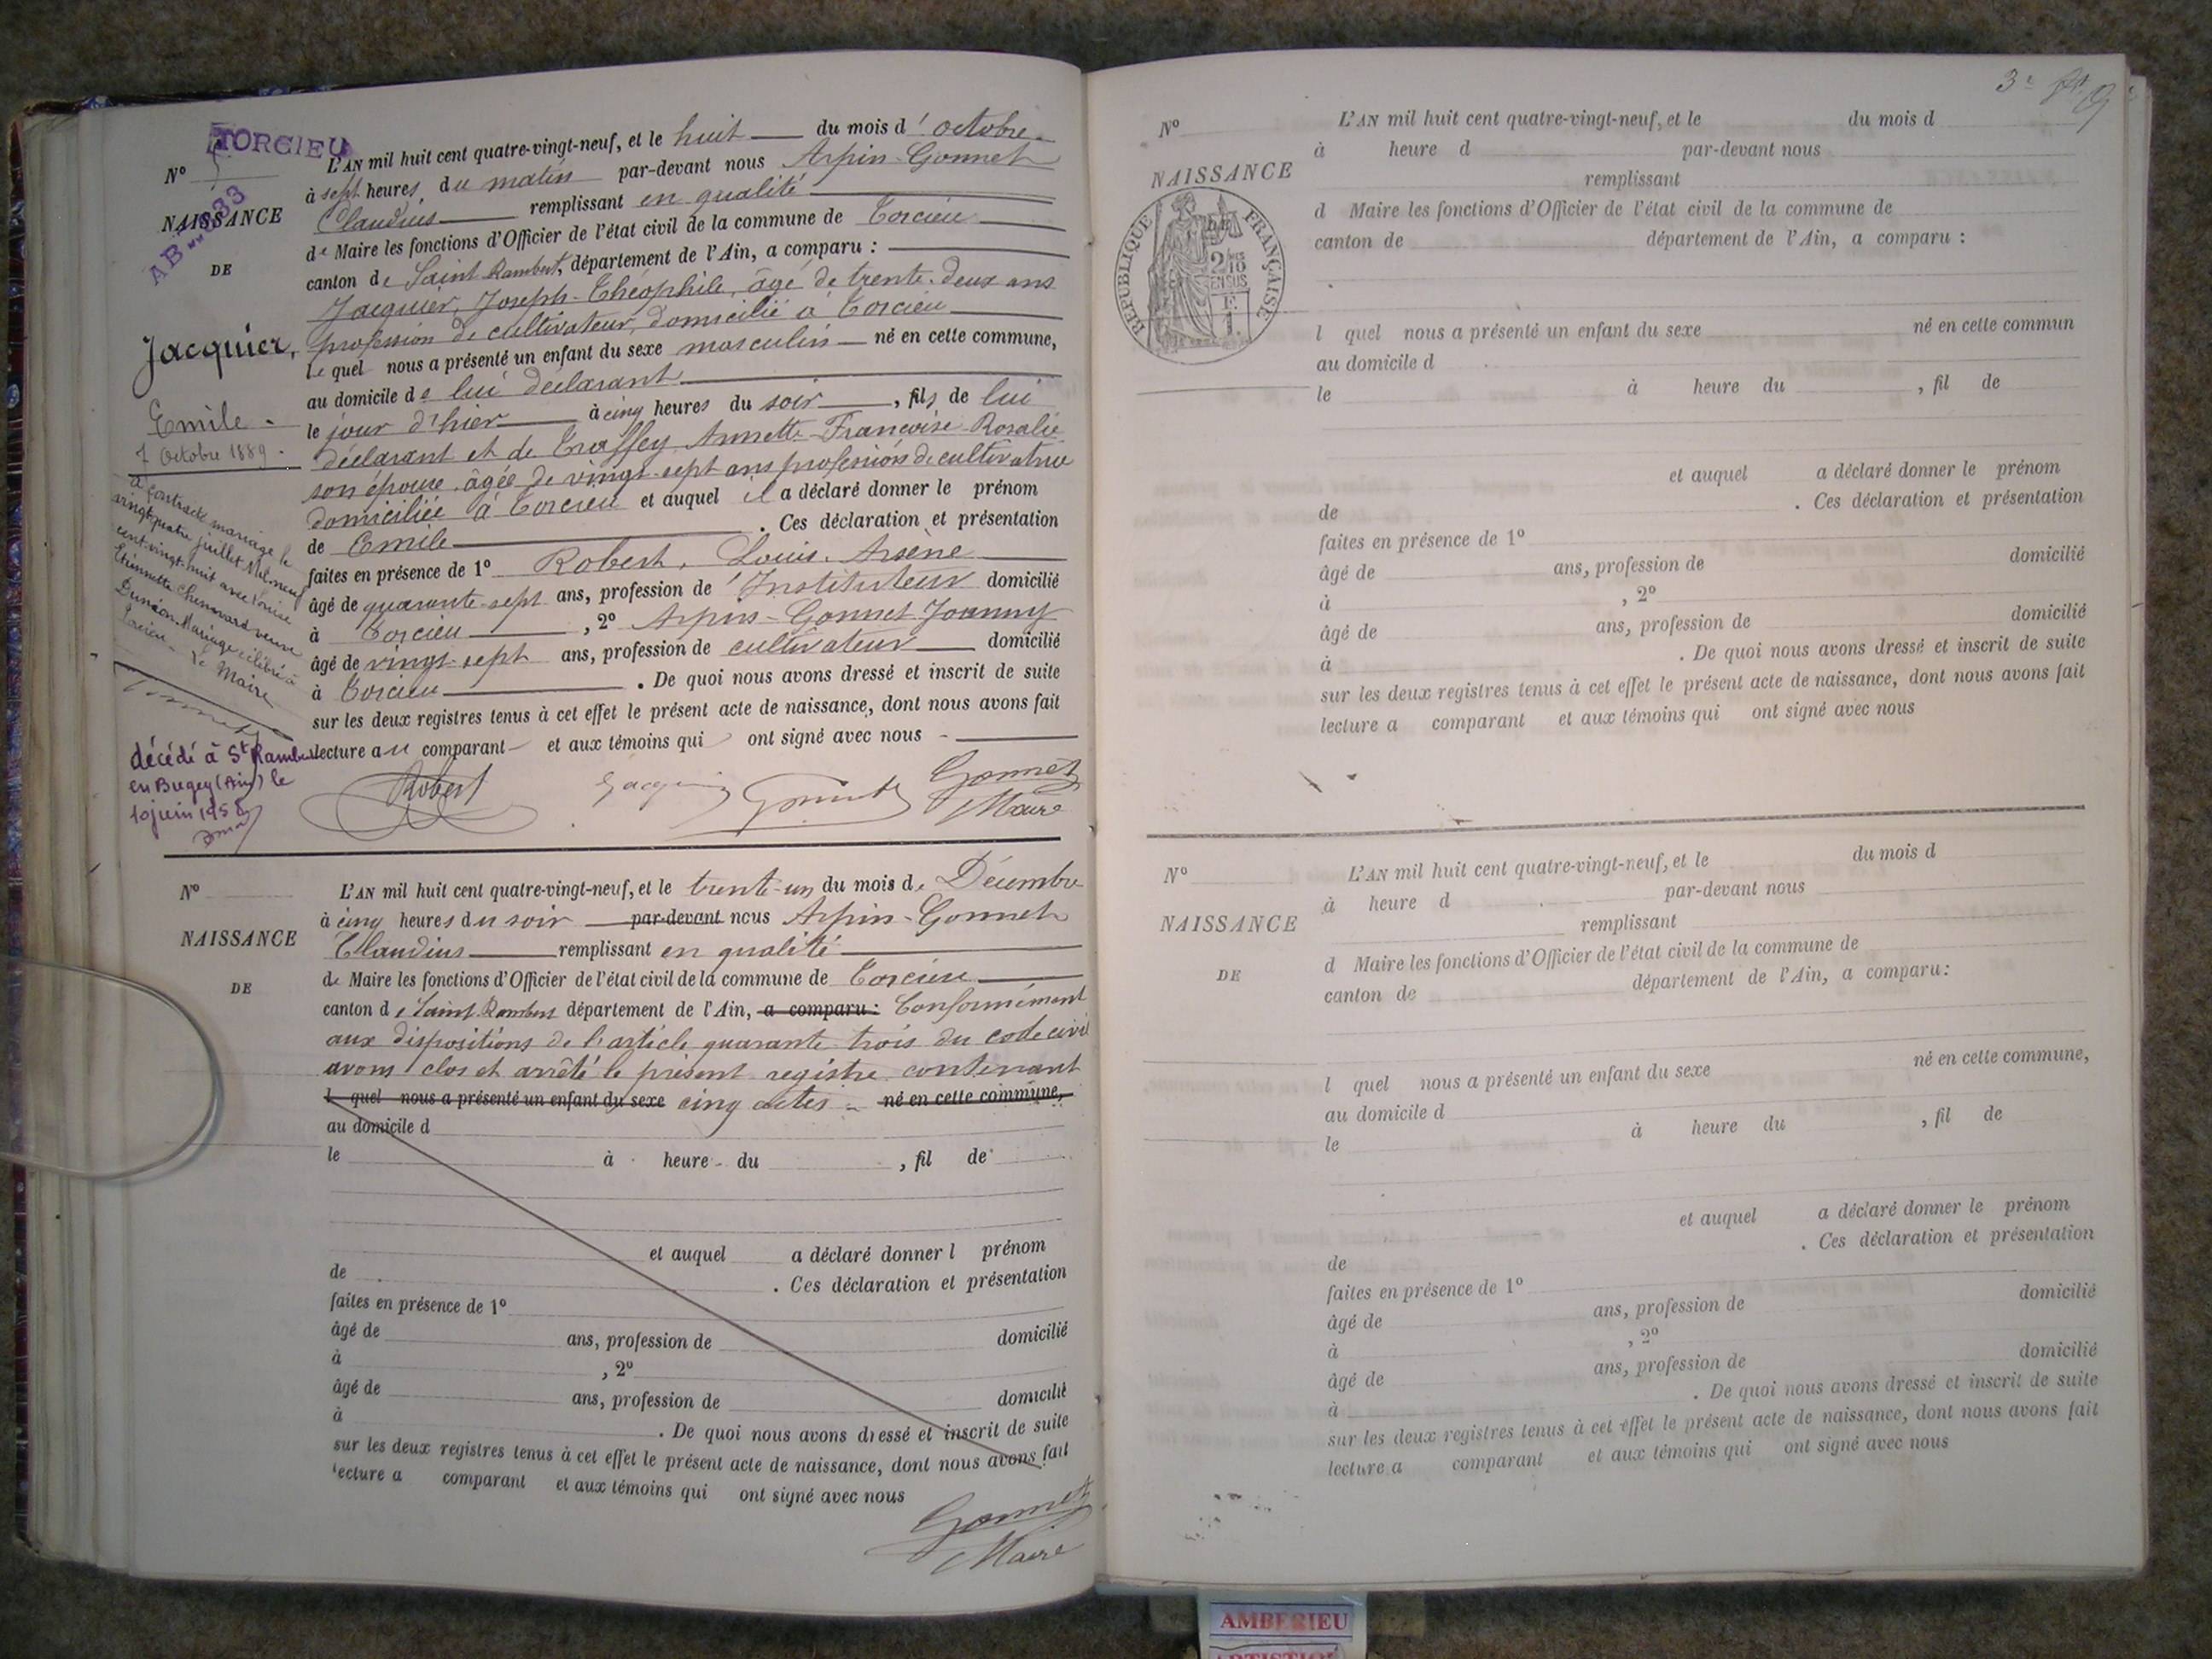 TORCIEU
N° 5
NAISSANCE
DE
Jacquier,
Emile -
7 Octobre 1889 -
a contracté mariage le
vingt quatre juillet Mil neuf
cent vingt huit avec Louise
Etiennette Chenavard veuve
Mariage célébré à
Torcieu - Le Maire
décédé à St Rambert
en Bugey (Ain) le
10 juin 1958
L'AN mil huit cent quatre-vingt-neuf, et le huit du mois d'octobre
à sept heures, du matin par-devant nous Arpin-Gonnet
Claudius remplissant en qualité
de Maire les fonctions d'Officier de l'état civil de la commune de Torcieu
canton de Saint Rambert, département de l'Ain, a comparu :
Jacquier, Joseph-Théophile, âgé de trente-deux ans
profession de cultivateur, domicilié à Torcieu
le quel nous a présenté un enfant du sexe masculin né en cette commune,
au domicile de lui déclarant
le jour d'hier à cinq heures du soir, fils de lui
déclarant et de Annette-Françoise-Rosalie
son épouse, âgée de vingt-sept ans profession de cultivatrice
domiciliée à Torcieu et auquel il a déclaré donner le prénom
de Emile. Ces déclaration et présentation
faites en présence de 1° Robert, Louis-Arsène
âgé de quarante-sept ans, profession d'Instituteur domicilié
à Torcieu, 2° Arpin-Gonnet Joanny
âgé de vingt-sept ans, profession de cultivateur domicilié
à Torcieu. De quoi nous avons dressé et inscrit de suite
sur les deux registres tenus à cet effet le présent acte de naissance, dont nous avons fait
lecture au comparant et aux témoins qui ont signé avec nous -
Robert Jacquier Gonnet Gonnet
Maire
N°
NAISSANCE
DE
L'AN mil huit cent quatre-vingt-neuf, et le trente-un du mois de Décembre
à cinq heures du soir par-devant nous Arpin-Gonnet
Claudius remplissant en qualité
de Maire les fonctions d'Officier de l'état civil de la commune de Torcieu
canton de Saint Rambert département de l'Ain, a comparu : Conformément
aux dispositions de l'article quarante-trois du code civil
avons clos et arrêté le présent registre contenant
l quel nous a présenté un enfant du sexe cinq actes - né en cette commune,
au domicile d
le à heure du , fil de
et auquel a déclaré donner l prénom
de . Ces déclaration et présentation
faites en présence de 1°
âgé de ans, profession de domicilié
à , 2°
âgé de ans, profession de domicilié
à . De quoi nous avons dressé et inscrit de suite
sur les deux registres tenus à cet effet le présent acte de naissance, dont nous avons fait
lecture a comparant et aux témoins qui ont signé avec nous
Gonnet
Maire
N°
NAISSANCE
RÉPUBLIQUE FRANÇAISE
2/10
EN SUS
F.
1.
L'AN mil huit cent quatre-vingt-neuf, et le du mois d
à heure d par-devant nous
remplissant
d Maire les fonctions d'Officier de l'état civil de la commune de
canton de département de l'Ain, a comparu :
l quel nous a présenté un enfant du sexe né en cette commun
au domicile d
le à heure du , fil de
et auquel a déclaré donner le prénom
de . Ces déclaration et présentation
faites en présence de 1°
âgé de ans, profession de domicilié
à , 2°
âgé de ans, profession de domicilié
à . De quoi nous avons dressé et inscrit de suite
sur les deux registres tenus à cet effet le présent acte de naissance, dont nous avons fait
lecture a comparant et aux témoins qui ont signé avec nous
N°
NAISSANCE
DE
L'AN mil huit cent quatre-vingt-neuf, et le du mois d
à heure d par-devant nous
remplissant
d Maire les fonctions d'Officier de l'état civil de la commune de
canton de département de l'Ain, a comparu:
l quel nous a présenté un enfant du sexe né en cette commune,
au domicile d
le à heure du , fil de
et auquel a déclaré donner le prénom
de . Ces déclaration et présentation
faites en présence de 1°
âgé de ans, profession de domicilié
à , 2°
âgé de ans, profession de domicilié
à . De quoi nous avons dressé et inscrit de suite
sur les deux registres tenus à cet effet le présent acte de naissance, dont nous avons fait
lecture a comparant et aux témoins qui ont signé avec nous
AMBERIEU